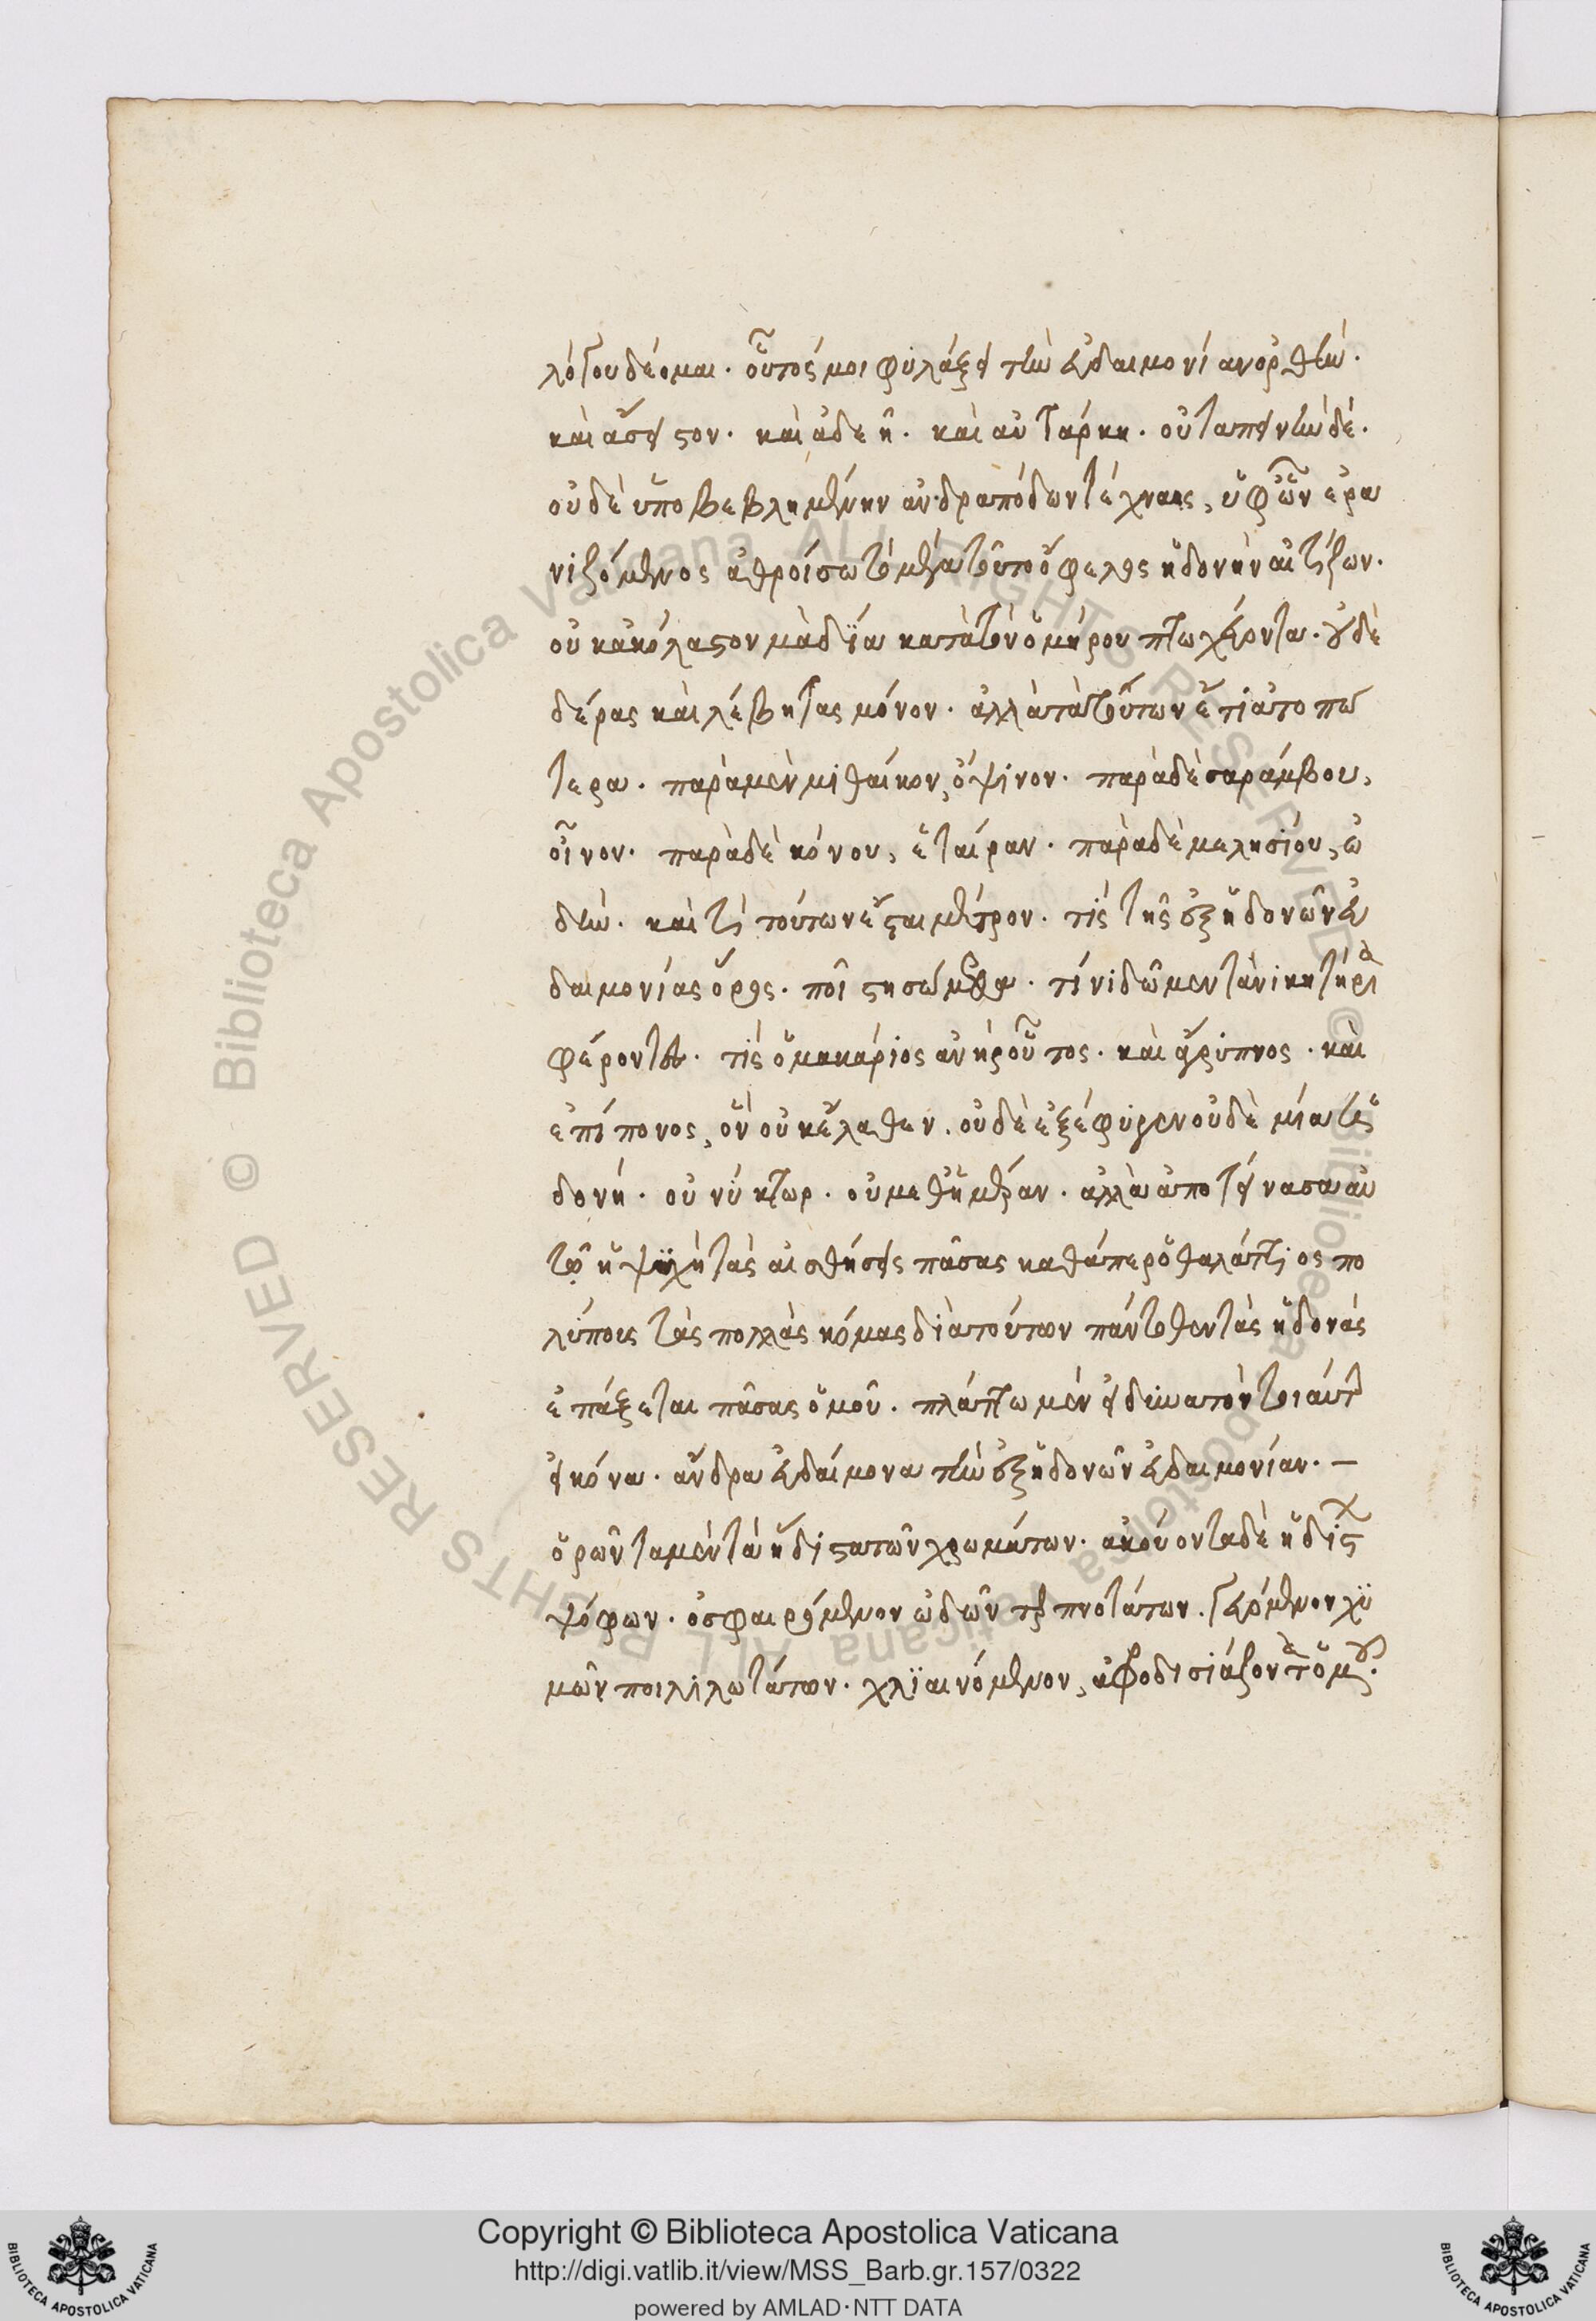 λόγου δέομαι. οὗτός μοι φυλάξει τὴν εὐδαιμονίαν ὀρθήν.
καὶ ἄσειστον. καὶ ἀδεῆ. καὶ αὐτάρκη. οὐ ταπεινὴν δέ.
οὐδὲ ὑποβεβλημένην ἀνδραπόδων τέχναις, ὑφ' ὧν ἐρα
νιζόμενος ἀθροίσω τὸ μέγα τοῦτο ὄφελος ἡδονὴν αἰτίζων.
οὐκ ἀκόλαστον μὰ δία κατὰ τὸν ὁμήρου πτωχεύοντα. οὐδὲ
δέρας καὶ λέβητας μόνον. ἀλλὰ τὰ τούτων ἔτι ἀτοπώ
τερα. παρὰ μὲν μιθαίκον, ὄψινον. παρὰ δὲ σαράμβου,
οἶνον. παρὰ δὲ κόνου, ἑταίραν. παρὰ δὲ μελησίου, ὠ
δήν. καὶ τί τούτων ἔσται μέτρον. τίς τῆς ἐξ ἡδονῶν εὐ
δαιμονίας ὅρος. ποῖ στησώμεθα. τίνι δῶμεν τὰ νικητήρια
φέροντα. τίς ὁ μακάριος ἀνὴρ οὗτος. καὶ ἄγρυπνος. καὶ
ἐπίπονος, ὃν οὐκ ἔλαθεν. οὐδὲ ἐξέφυγεν οὐδὲ μία τις ἡ
δονή. οὐ νύκτωρ. οὐ μεθ' ἡμέραν. ἀλλὰ ἀποτείνασα αὐ
τῷ ἡ ψυχὴ τὰς αἰσθήσεις πᾶσας καθάπερ ὁ θαλάττιος πο
λύπους τὰς πολλὰς κόμας διὰ τούτων πάντοθεν τὰς ἡδονάς
ἐπάξεται πᾶσας ὁμοῦ. πλάττωμεν εἰ δύναιτο τὸν τοιαύτην
εἰκόνα. ἄνδρα εὐδαίμονα τὴν ἐξ ἡδονῶν εὐδαιμονίαν. –
ὁρῶντα μὲν τὰ ἥδιστα τῶν χρωμάτων. ἀκούοντα δὲ ἡδίστων
ψόφων. ὀσφραιρόμενον ὠδῶν τερπνοτάτων. γευόμενον χυ
μῶν ποικιλωτάτων. χλϊαινόμενον, ἀφροδισιάζοντα ὁμοῦ.